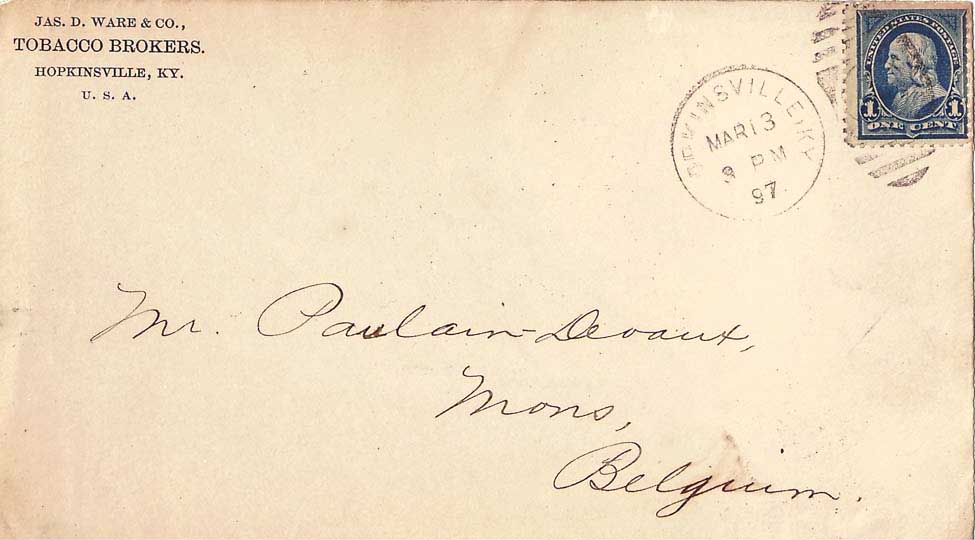 JAS. D. WARE & CO.,
TOBACCO BROKERS.
HOPKINSVILLE, KY.
U. S. A.
HOPKINSVILLE, KY
MAR 13
PM
97.
UNITED STATES POSTAGE
1 1
ONE CENT
Mr. Paulain-Devaux,
Mons,
Belguim.